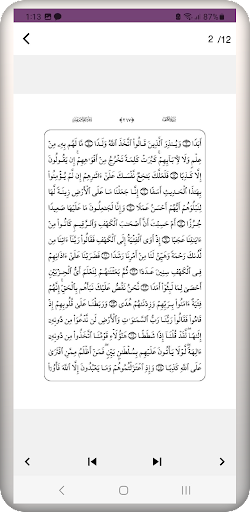 1:13
87%
2 /12
أَبَدًا ۝ وَيُنذِرَ الَّذِينَ قَالُوا اتَّخَذَ اللَّهُ وَلَدًا ۝ مَّا لَهُم بِهِ مِنْ
عِلْمٍ وَلَا لِآبَائِهِمْ كَبُرَتْ كَلِمَةً تَخْرُجُ مِنْ أَفْوَاهِهِمْ إِن يَقُولُونَ
إِلَّا كَذِبًا ۝ فَلَعَلَّكَ بَاخِعٌ نَّفْسَكَ عَلَىٰ آثَارِهِمْ إِن لَّمْ يُؤْمِنُوا
بِهَٰذَا الْحَدِيثِ أَسَفًا ۝ إِنَّا جَعَلْنَا مَا عَلَى الْأَرْضِ زِينَةً لَّهَا
لِنَبْلُوَهُمْ أَيُّهُمْ أَحْسَنُ عَمَلًا ۝ وَإِنَّا لَجَاعِلُونَ مَا عَلَيْهَا صَعِيدًا
جُرُزًا ۝ أَمْ حَسِبْتَ أَنَّ أَصْحَابَ الْكَهْفِ وَالرَّقِيمِ كَانُوا مِنْ
آيَاتِنَا عَجَبًا ۝ إِذْ أَوَى الْفِتْيَةُ إِلَى الْكَهْفِ فَقَالُوا رَبَّنَا آتِنَا مِن
لَّدُنكَ رَحْمَةً وَهَيِّئْ لَنَا مِنْ أَمْرِنَا رَشَدًا ۝ فَضَرَبْنَا عَلَىٰ آذَانِهِمْ
فِي الْكَهْفِ سِنِينَ عَدَدًا ۝ ثُمَّ بَعَثْنَاهُمْ لِنَعْلَمَ أَيُّ الْحِزْبَيْنِ
أَحْصَىٰ لِمَا لَبِثُوا أَمَدًا ۝ نَّحْنُ نَقُصُّ عَلَيْكَ نَبَأَهُم بِالْحَقِّ إِنَّهُمْ
فِتْيَةٌ آمَنُوا بِرَبِّهِمْ وَزِدْنَاهُمْ هُدًى ۝ وَرَبَطْنَا عَلَىٰ قُلُوبِهِمْ إِذْ
قَامُوا فَقَالُوا رَبُّنَا رَبُّ السَّمَاوَاتِ وَالْأَرْضِ لَن نَّدْعُوَ مِن دُونِهِ
إِلَٰهًا لَّقَدْ قُلْنَا إِذًا شَطَطًا ۝ هَٰؤُلَاءِ قَوْمُنَا اتَّخَذُوا مِن دُونِهِ
آلِهَةً لَّوْلَا يَأْتُونَ عَلَيْهِم بِسُلْطَانٍ بَيِّنٍ فَمَنْ أَظْلَمُ مِمَّنِ افْتَرَىٰ
عَلَى اللَّهِ كَذِبًا ۝ وَإِذِ اعْتَزَلْتُمُوهُمْ وَمَا يَعْبُدُونَ إِلَّا اللَّهَ فَأْوُوا